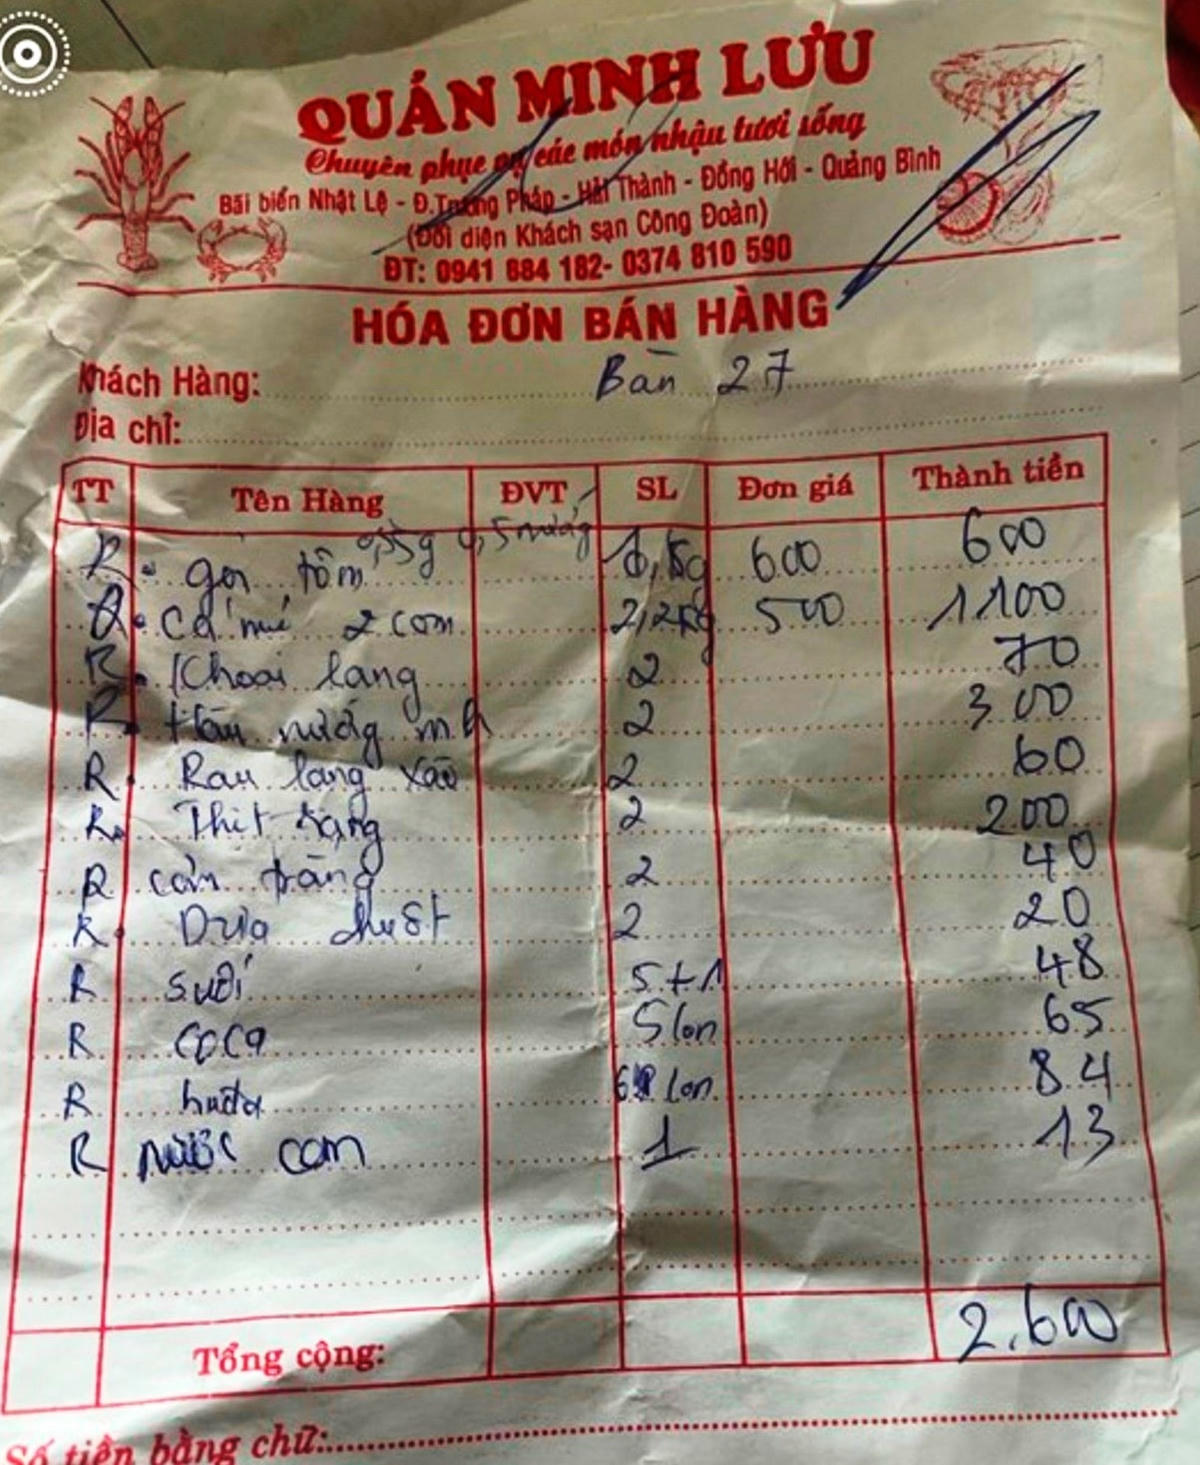 QUÁN MINH LƯU
Chuyên phục vụ các món nhậu tươi sống
Bãi biển Nhật Lệ - Đ.Trương Pháp - Hải Thành - Đồng Hới - Quảng Bình
(Đối diện Khách sạn Công Đoàn)
ĐT: 0941 884 182- 0374 810 590
HÓA ĐƠN BÁN HÀNG
Khách Hàng: Bàn 27
Địa chỉ:
TT Tên Hàng ĐVT SL Đơn giá Thành tiền
R gỏi tôm 600 600
R Cá mú 2 con 2,2kg 500 1100
R Khoai lang 2 70
R Hàu nướng mh 2 300
R Rau lang xào 2 60
R Thịt rang 2 200
R cơm trắng 2 40
R Dưa chuột 2 20
R suối 5+1 48
R coca 5 lon 65
R huda lon 84
R nước cam 1 13
Tổng cộng: 2.600
Số tiền bằng chữ: